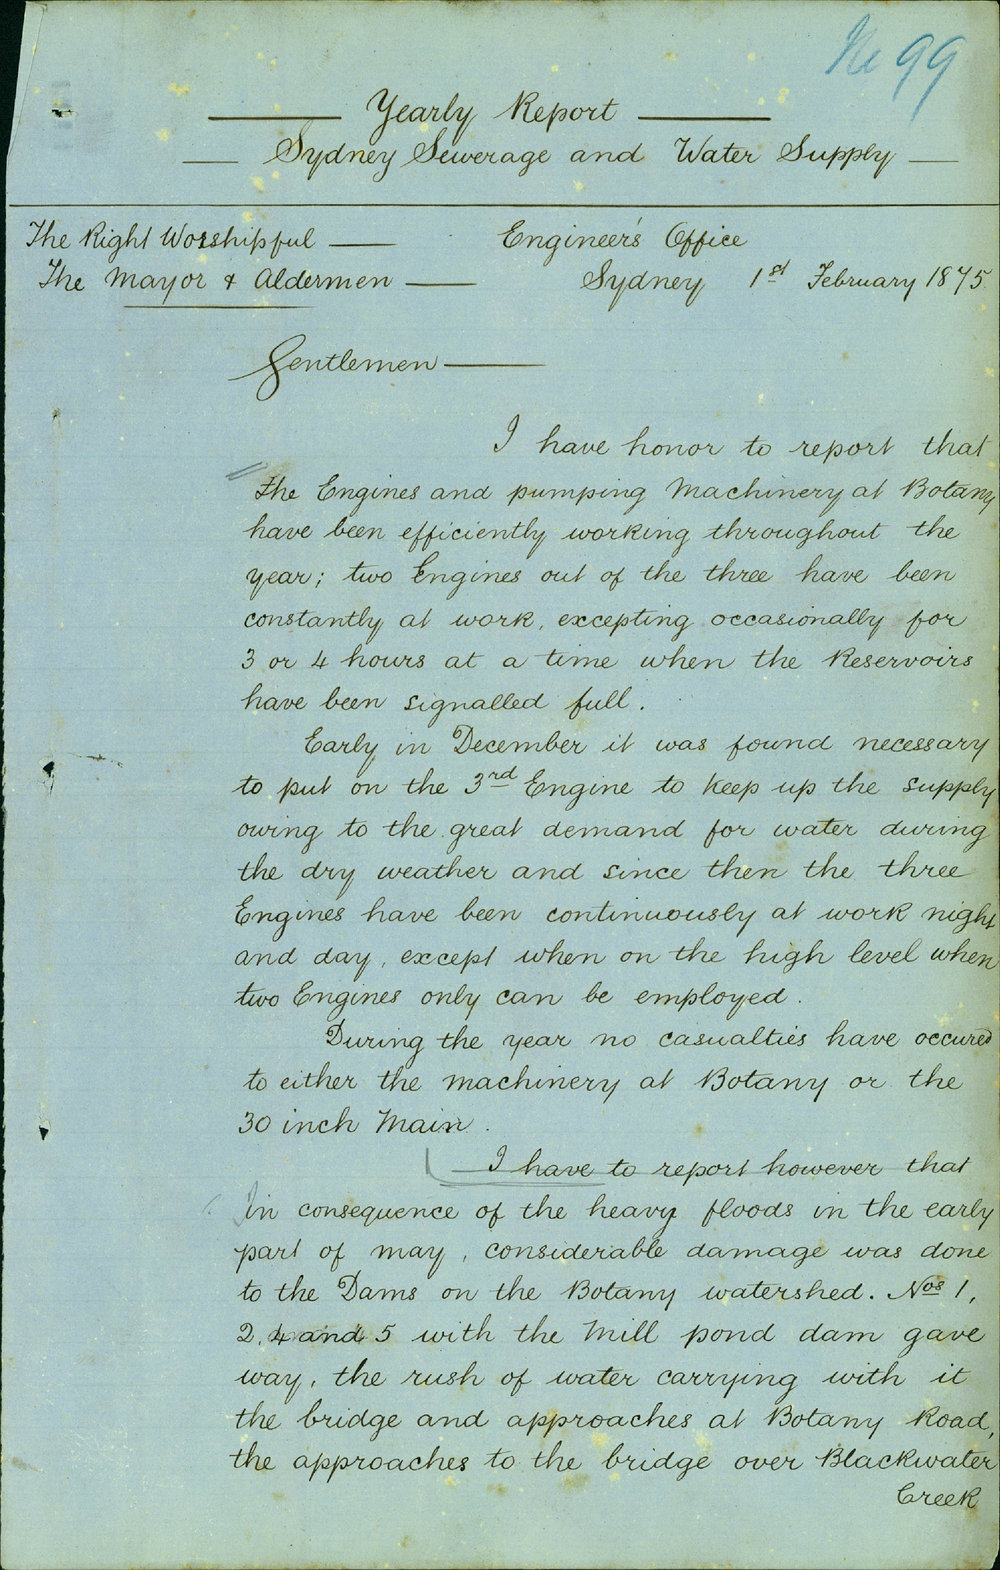 No 99
Yearly Report
Sydney Sewerage and Water Supply
The Right Worshipful
The Mayor & Aldermen
Engineer's Office
Sydney 1st February 1875
Gentlemen
I have honor to report that
the Engines and pumping Machinery at Botany
have been efficiently working throughout the
year; two Engines out of the three have been
constantly at work, excepting occasionally for
3 or 4 hours at a time when the Reservoirs
have been signalled full.
Early in December it was found necessary
to put on the 3rd Engine to keep up the supply
owing to the great demand for water during
the dry weather and since then the three
Engines have been continuously at work night
and day, except when on the high level when
two Engines only can be employed.
During the year no casualties have occured
to either the machinery at Botany or the
30 inch Main.
I have to report however that
In consequence of the heavy floods in the early
part of May, considerable damage was done
to the Dams on the Botany watershed. Nos 1,
2, 4 and 5 with the Mill pond dam gave
way, the rush of water carrying with it
the bridge and approaches at Botany Road,
the approaches to the bridge over Blackwater
Creek